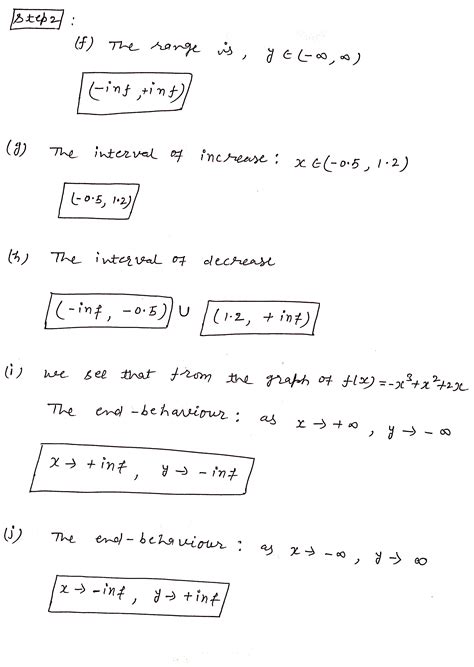 Step2 :
(f) The range is, y ∈ (-∞, ∞)
(-inf, +inf)
(g) The interval of increase: x ∈ (-0.5, 1.2)
(-0.5, 1.2)
(h) The interval of decrease
(-inf, -0.5) ∪ (1.2, +inf)
(i) we see that from the graph of f(x) = -x³+x²+2x
The end-behaviour: as x → +∞, y → -∞
x → +inf, y → -inf
(j) The end-behaviour: as x → -∞, y → ∞
x → -inf, y → +inf